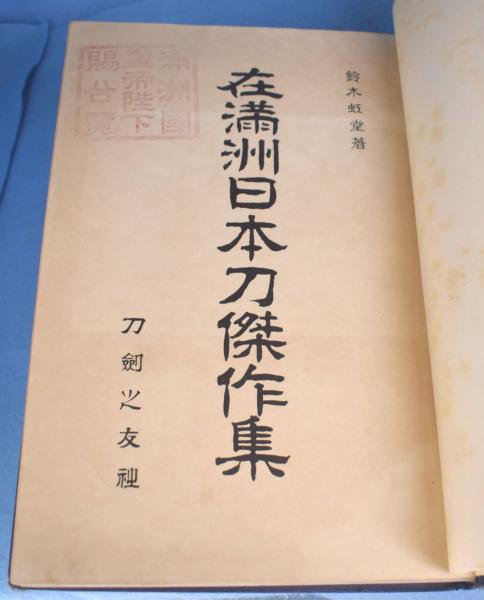 鈴木虹堂著
在滿洲日本刀傑作集
滿洲國
皇帝陛下
賜台覽
刀劍之友社